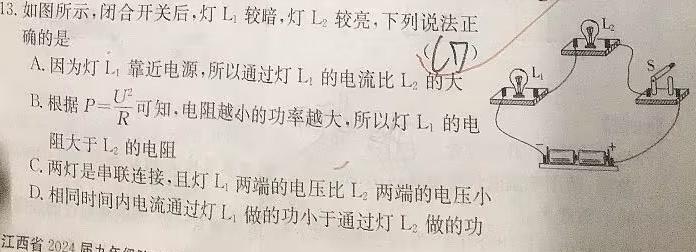 13. 如图所示,闭合开关后,灯 L₁ 较暗,灯 L₂ 较亮,下列说法正
确的是
(CD)
A. 因为灯 L₁ 靠近电源,所以通过灯 L₁ 的电流比 L₂ 的大
B. 根据 P=U²/R 可知,电阻越小的功率越大,所以灯 L₁ 的电
阻大于 L₂ 的电阻
C. 两灯是串联连接,且灯 L₁ 两端的电压比 L₂ 两端的电压小
D. 相同时间内电流通过灯 L₁ 做的功小于通过灯 L₂ 做的功
L₂
S
L₁
- +
江西省 2024 届九年级